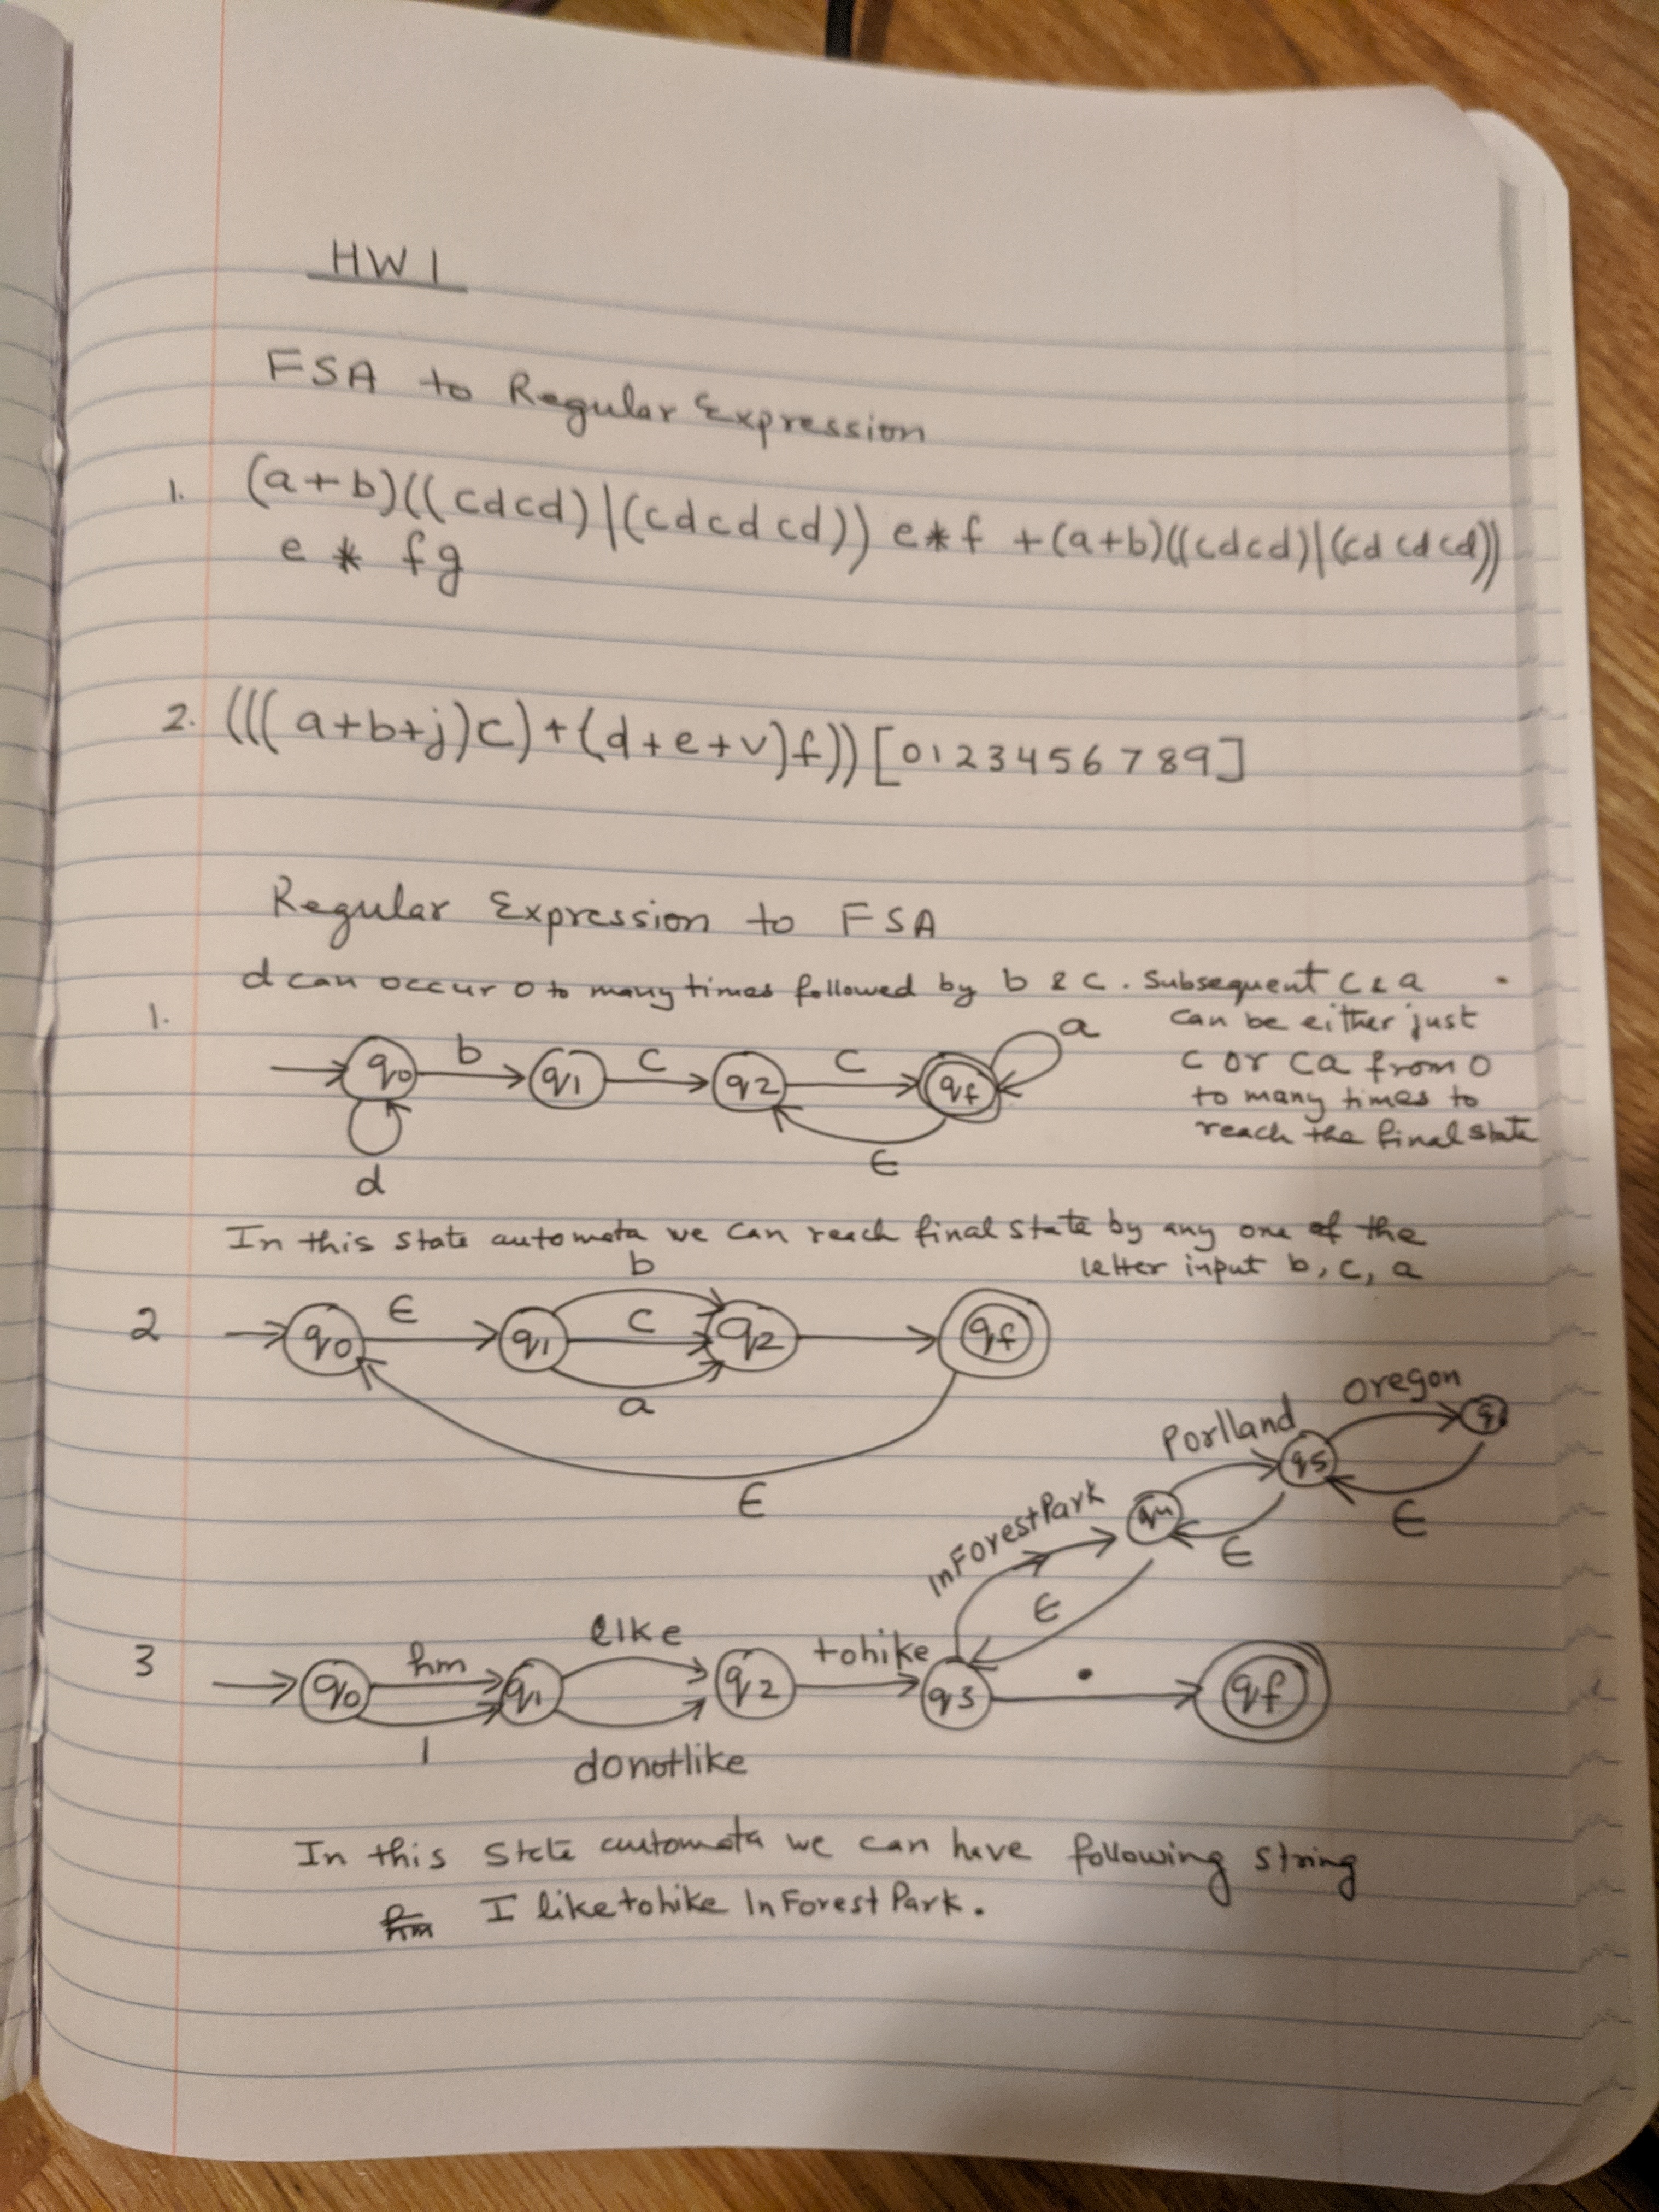 HW 1
FSA to Regular Expression
1. (a+b)((cdcd)|(cdcdcd)) e*f +(a+b)((cdcd)|(cdcdcd))
e * fg
2. (((a+b+j)c)+(d+e+v)f))[0123456789]
Regular Expression to FSA
d can occur 0 to many times followed by b & c. Subsequent c & a
can be either just
c or ca from 0
to many times to
reach the final state
1.
q0 b q1 c q2 c qf a
ϵ
d
In this state automata we can reach final state by any one of the
letter input b, c, a
b
2 q0 ϵ q1 c q2 qf
a
ϵ
Porlland oregon
q4 q5 q
InForestPark ϵ ϵ
ϵ
like
3 q0 hm q1 q2 tohike q3 . qf
I
donotlike
In this state automata we can have following string
hm I liketohike InForestPark.